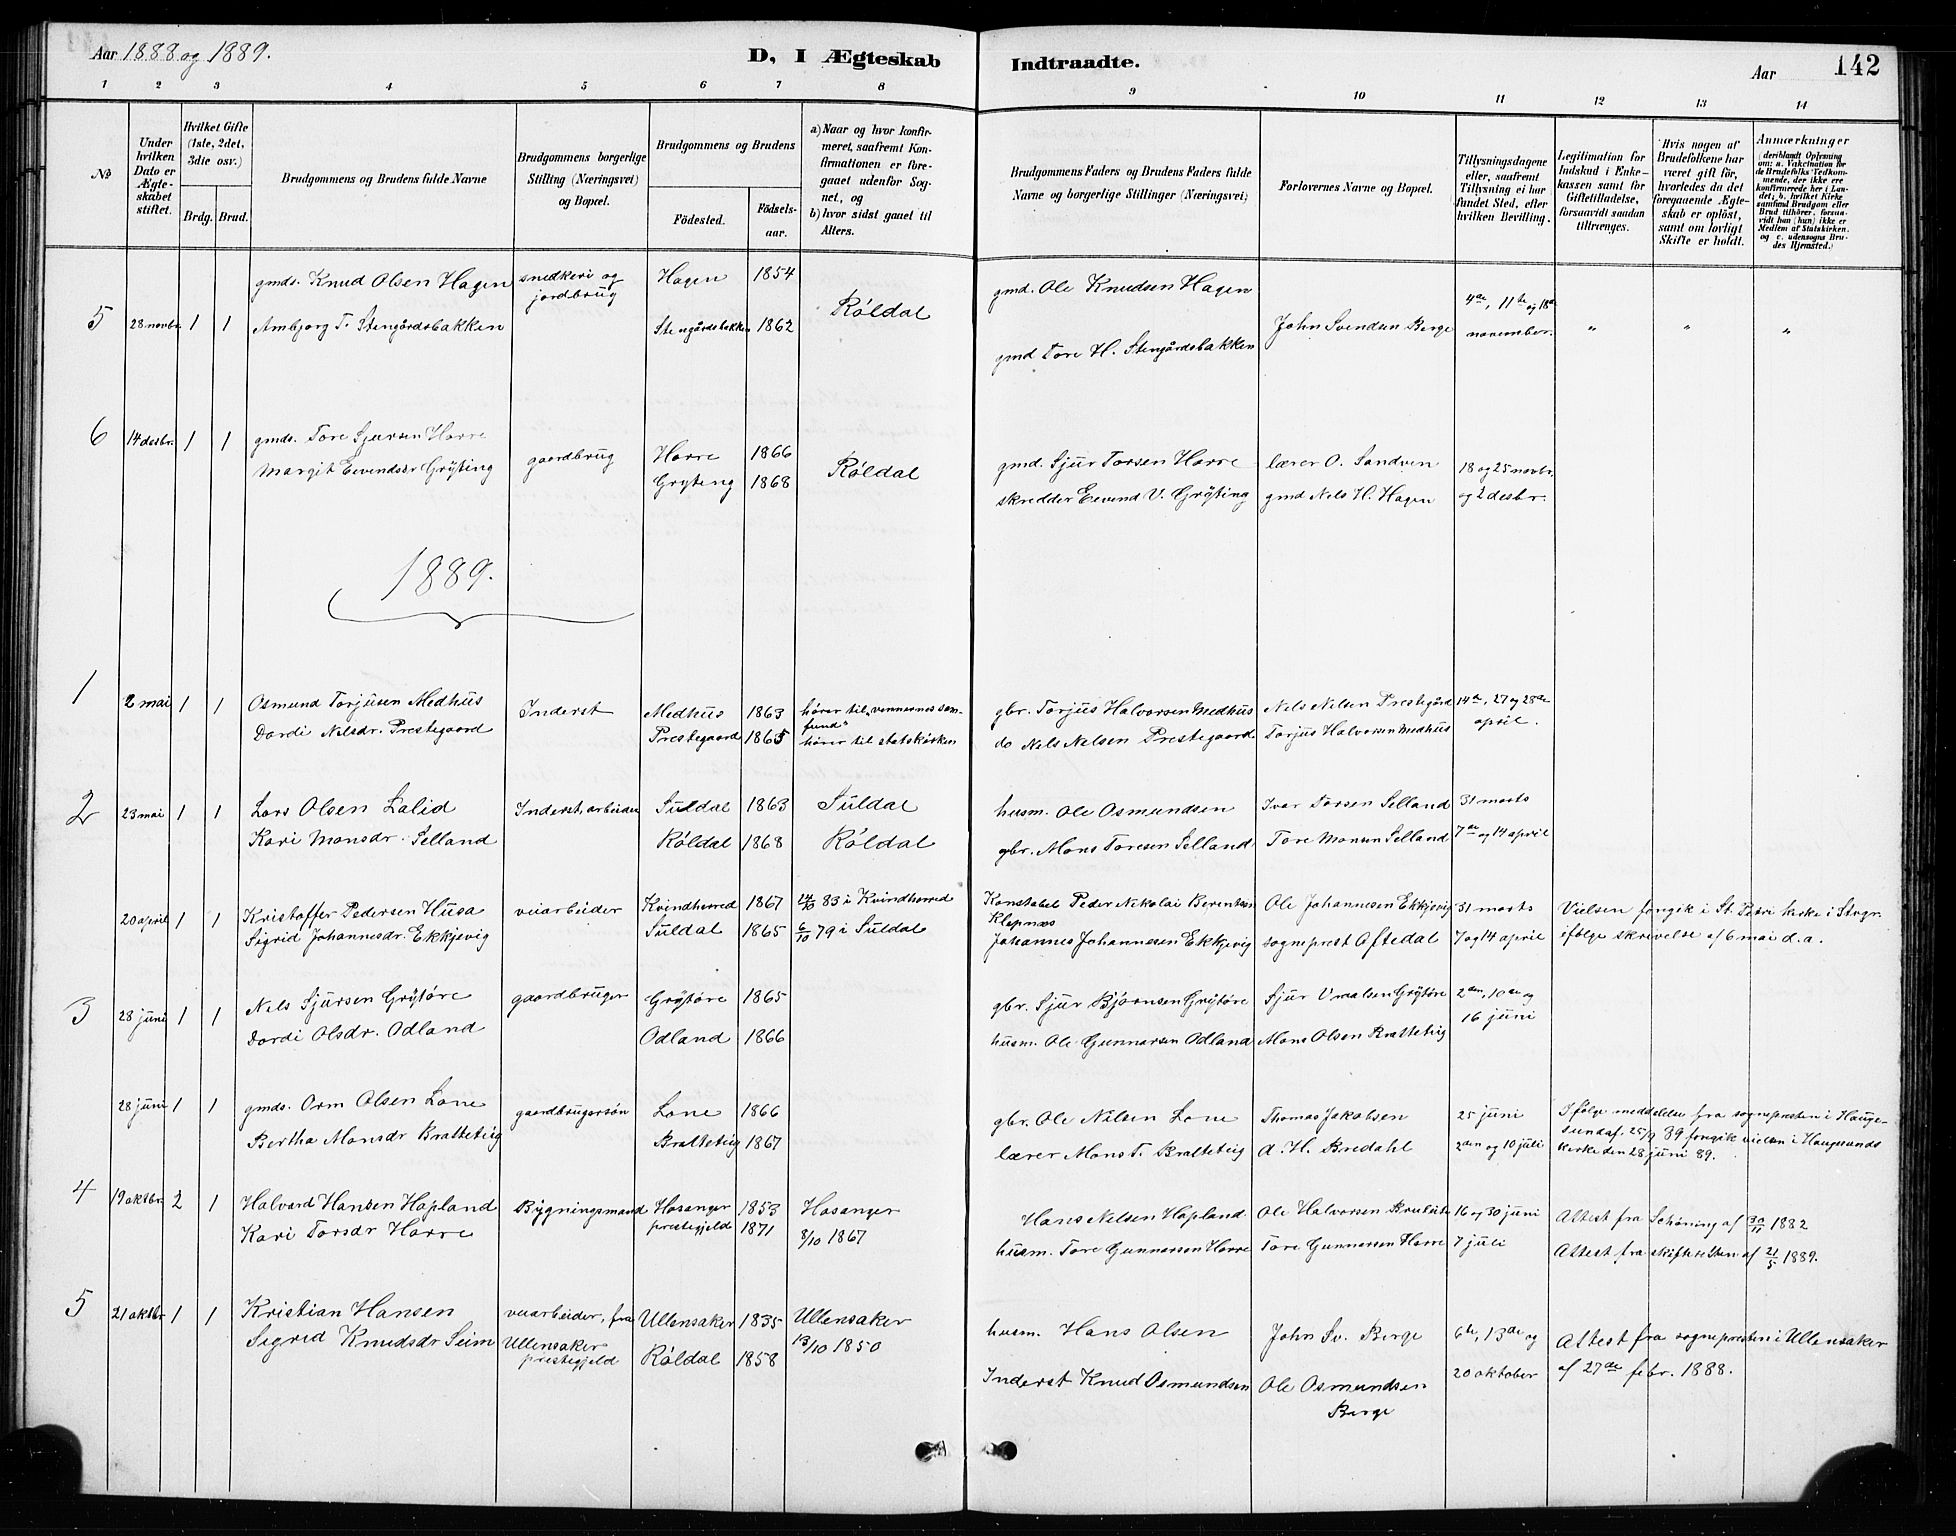 Aar 1888 og 1889.
D, I Ægteskab Indtraadte.
Aar 142
1 2 3 4 5 6 7 8 9 10 11 12 13 14
No
Under hvilken Dato er Ægteskabet stiftet.
Hvilket Gifte (1ste, 2det, 3die osv.)
Brdg. Brud.
Brudgommens og Brudens fulde Navne
Brudgommens borgerlige Stilling (Næringsvei) og Bopæl.
Brudgommens og Brudens
Fødested. Fødselsaar.
a) Naar og hvor konfirmeret, saafremt Konfirmationen er foregaaet udenfor Sognet, og
b) hvor sidst gaaet til Alters.
Brudgommens Faders og Brudens Faders fulde Navne og borgerlige Stillinger (Næringsvei)
Forlovernes Navne og Bopæl.
Tillysningsdagene eller, saafremt Tillysning ei har fundet Sted, efter hvilken Bevilling.
Legitimation for Indskud i Enkekassen samt for Giftetilladelse, forsaavidt saadan tiltrænges.
Hvis nogen af Brudefolkene har været gift før, hvorledes da det foregaaende Ægteskab er opløst, samt om lovligt Skifte er holdt.
Anmærkninger (deriblandt Oplysning om: a. Vakcination for de Brudefolks Vedkommende, der ikke ere konfirmerede her i Landet; b. hvilket Kirkesamfund Brudgom eller Brud tilhører, forsaavidt han (hun) ikke er Medlem af Statskirken. og c. udensogns Brudes Hjemsted.)
5 28 novbr. 1 1 gmds. Knud Olsen Hagen snedkeri og jordbrug Hagen 1854 Røldal gmd. Ole Knudsen Hagen John Svendsen Berge 4de, 11te og 18de november. " " "
Ambjorg T. Stengårdsbakken Stengårdsbakken 1862 gmd Tore H. Stengårdsbakken
6 14 desbr. 1 1 gmds. Tore Sjursen Horre gaardbrug Horre 1866 Røldal gmd. Sjur Torsen Horre lærer O. Sandven 18 og 25 novbr.
Margit Eivendsdr Grýting Gryting 1868 skredder Eivend V. Grýting gmd Nels H. Hagen og 2 desbr.
1889.
1 2 mai 1 1 Osmund Torjusen Medhus Inderst Medhus 1863 hører til „vennernes samfund" gbr. Torjus Halvorsen Medhus Nels Nelsen Prestegård 14de, 27 og 28de april.
Dordi Nelsdr. Prestegaard Prestegaard 1865 hører til statskirken do Nels Nelsen Prestegaard Torjus Halvorsen Medhus
2 23 mai 1 1 Lars Olsen Lalid Inderst, arbeider Suldal 1863 Suldal husm. Ole Osmundsen Ivar Torsen Selland 31 marts
Kari Monsdr. Selland Røldal 1868 Røldal gbr. Mons Toresen Selland Tore Monsen Selland 7de og 14 april
20 april 1 1 Kristoffer Pedersen Husa veiarbeider Kvindherred 1867 83 i Kvindherred Konstabel Peder Nikolai Berentsen Ole Johannesen Ekkjevig 31 marts Vielsen foregik i St. Petri kirke i Stvgr.
Sigrid Johannesdr. Ekkjevig Suldal 1865 6/10 79 i Suldal Johannes Johannesen Ekkjevig sogneprest Aftedal 7 og 14 april ifølge skrivelse af 6 mai d.a.
3 28 juni 1 1 Nels Sjursen Grýtøre gaardbruger Grýtøre 1865 gbr. Sjur Bjørnsen Grýtøre Sjur Grýtøre 2den, 10de og
Dordi Olsdr. Odland Odland 1866 husm. Ole Gunnarsen Odland Mons Olsen Bratteteig 16 juni
28 juni 1 1 gmds. Orm Olsen Lone gaardbrugersøn Lone 1866 gbr. Ole Nelsen Lone Thomas Jakobsen 25 juni Ifølge meddelelse fra sognepresten i Haugesund af 25/9 89 foregik vielsen i Haugesunds
Bertha Monsdr Bratteteig Bratteteig 1867 lærer Mons T. Bratteteig A. H. Bredahl 2den og 10 juli kirke den 28 juni 89.
4 19 oktbr. 2 1 Halvard Hansen Hopland Bygningsmand Hosanger prestegjeld 1853 Hosanger Hans Nelsen Hopland Ole Halvorsen 16 og 30 juni Attest fra Schøning af 30/11 1882
Kari Torsdr Horre 1871 8/10 1867 husm. Tore Gunnarsen Horre Tore Gunnarsen Horre 7 juli Attest fra skifteretten af 21/5 1889.
5 21 oktbr 1 1 Kristian Hansen veiarbeider, fra Ullensaker 1835 Ullensaker husm. Hans Olsen John Sv. Berge 6te, 13de og Attest fra sognepresten i Ullensaker
Sigrid Knudsdr Seim Ullensaker prestegjeld Røldal 1858 13/10 1850 Inderst Knud Osmundsen Ole Osmundsen Berge 20 oktober af 27de febr. 1888.